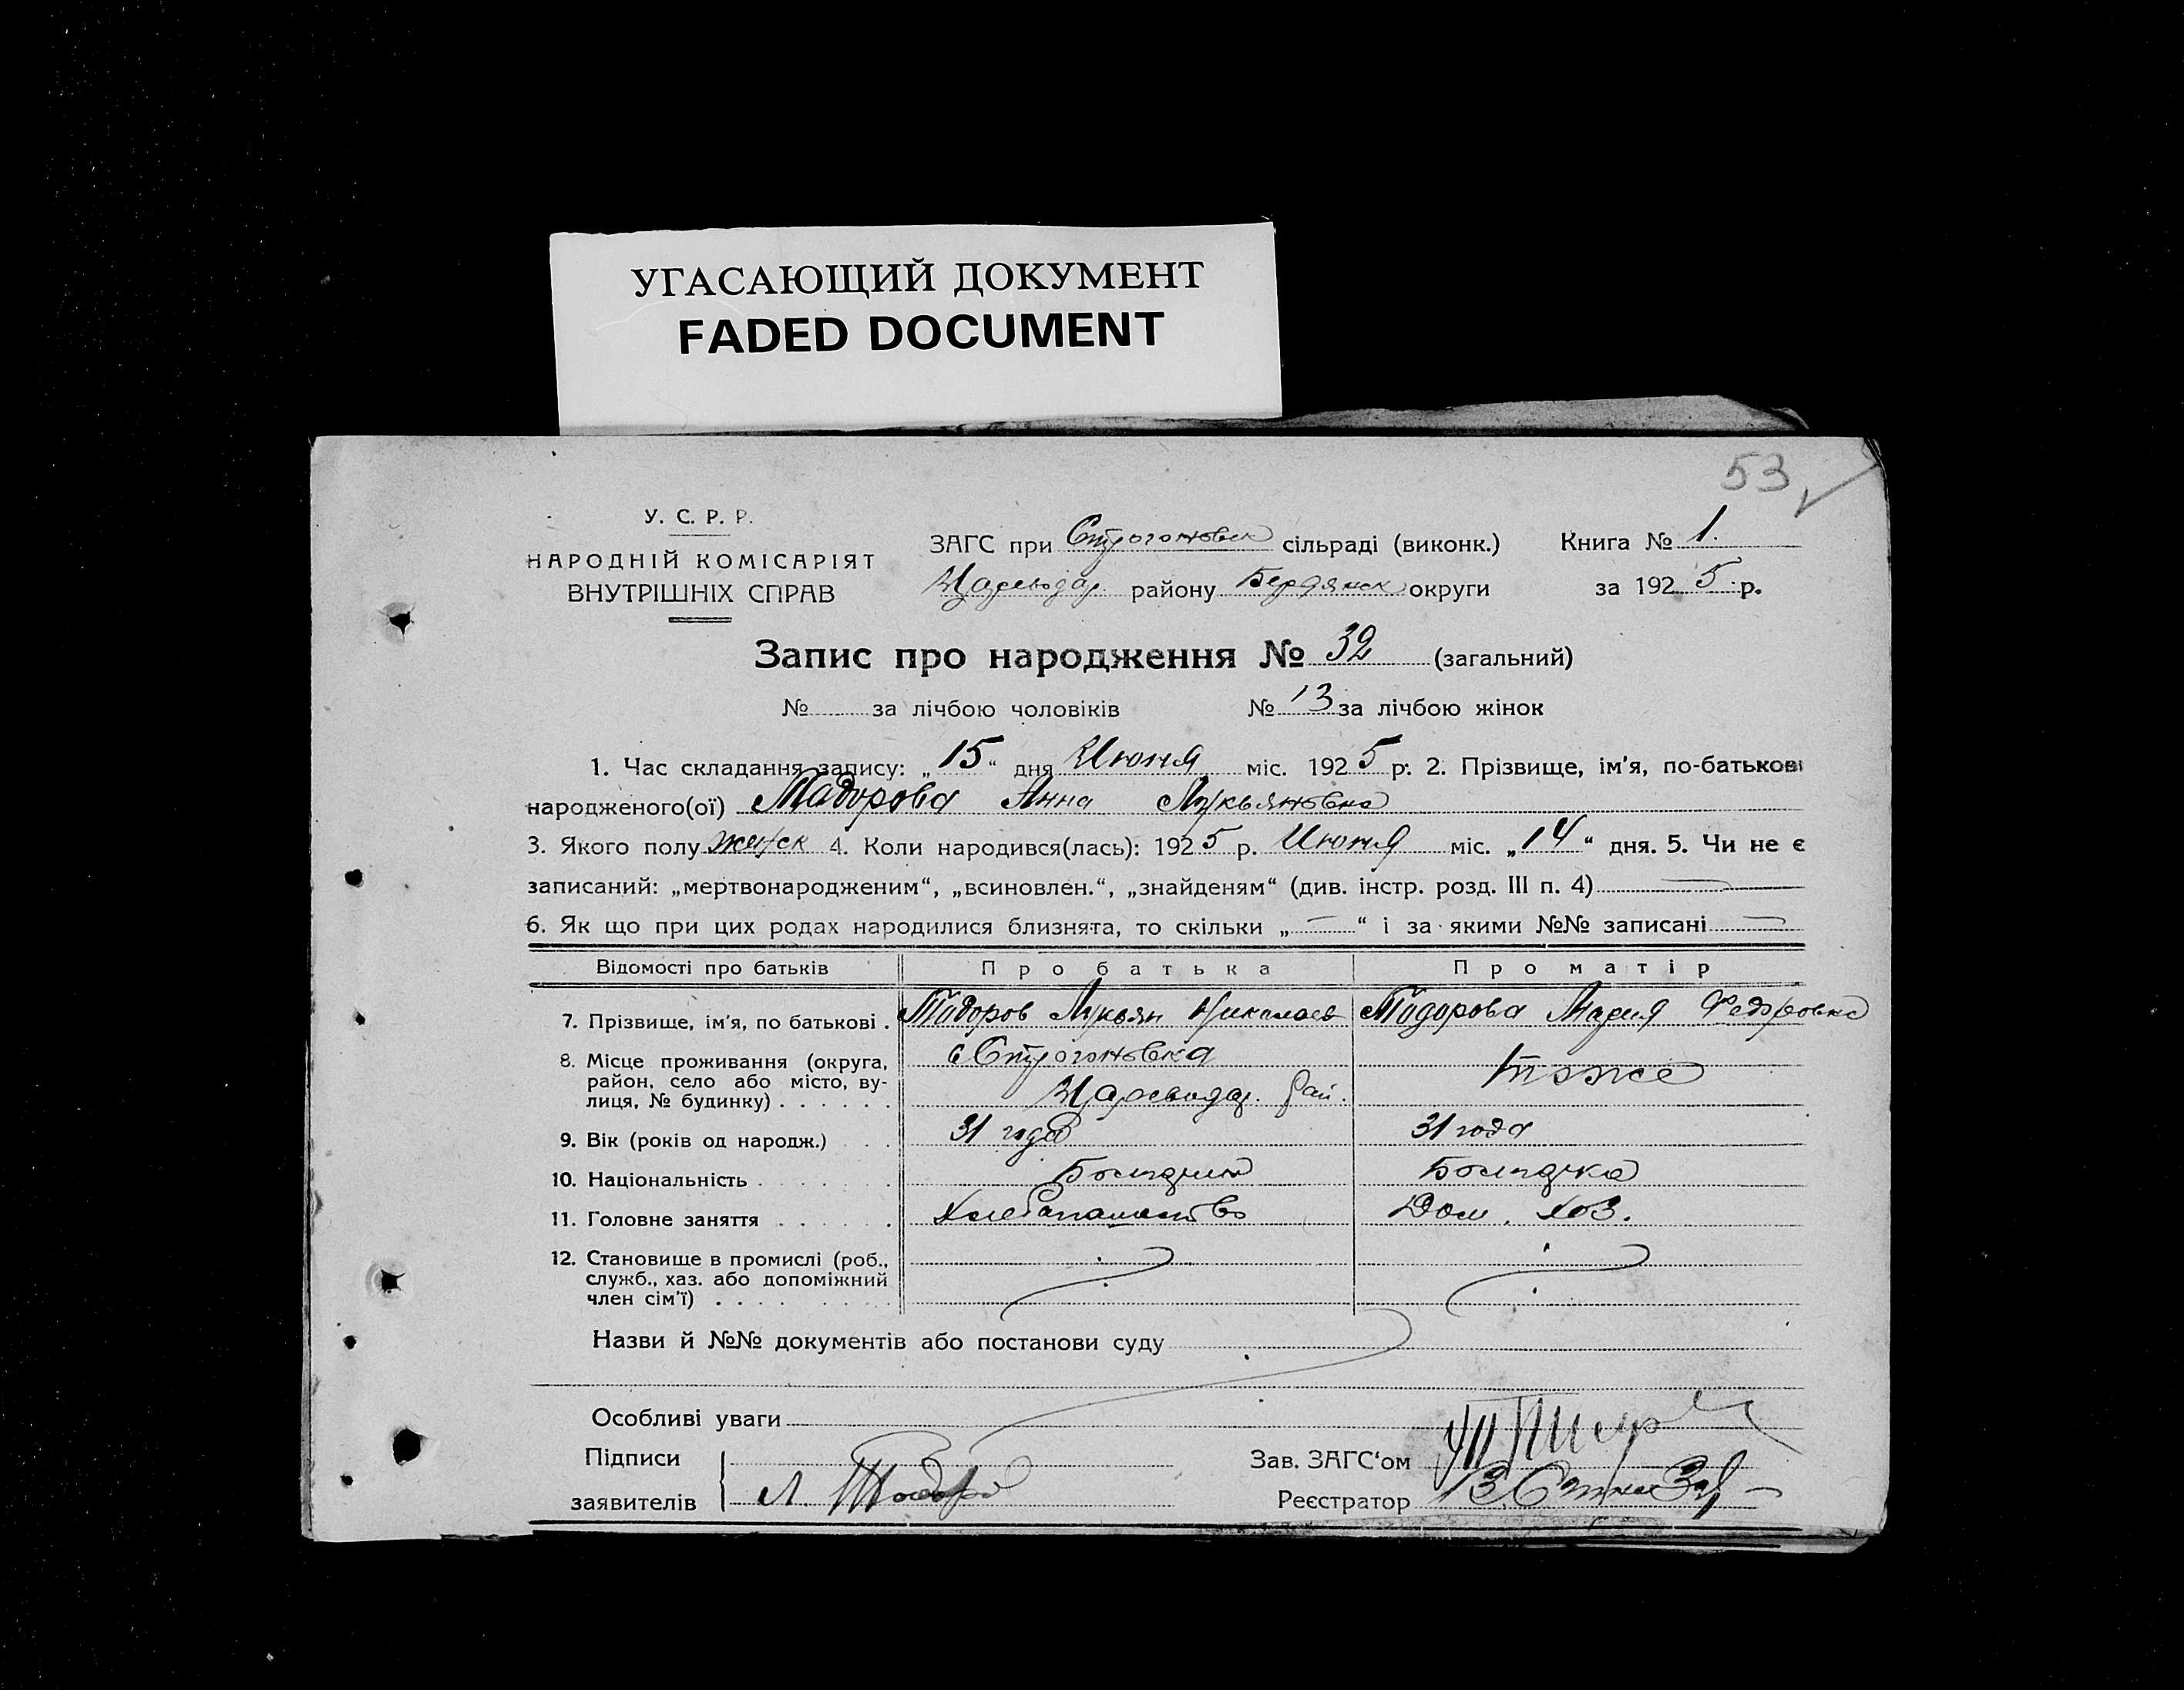 УГАСАЮЩИЙ ДОКУМЕНТ
FADED DOCUMENT
53
У. С. Р. Р.
НАРОДНІЙ КОМІСАРІЯТ
ВНУТРІШНІХ СПРАВ
ЗАГС при Строгоновск сільраді (виконк.) Книга № 1.
Цареводар. району Бердянск округи за 1925 р.
Запис про народження № 32 (загальний)
№ за лічбою чоловіків № 13 за лічбою жінок
1. Час складання запису: „15“ дня Июня міс. 1925 р. 2. Прізвище, ім'я, по-батькові
народженого(ої) Тодорова Анна Лукьяновна
3. Якого полу женск 4. Коли народився(лась): 1925 р. Июня міс. „14“ дня. 5. Чи не є
записаний: „мертвонародженим“, „всиновлен.“, „знайденям“ (див. інстр. розд. III п. 4) —
6. Як що при цих родах народилися близнята, то скільки „—“ і за якими №№ записані —
Відомості про батьків Про батька Про матір
7. Прізвище, ім'я, по батькові . Тодоров Лукьян Николаев Тодорова Мария Федоровна
8. Місце проживання (округа, район, село або місто, вулиця, № будинку) . . . . . . с Строгоновка Цареводар. рай. тоже
9. Вік (років од народж.) . . 31 года 31 года
10. Національність . . . . . . Болгарин Болгарка
11. Головне заняття . . . . . . Хлебопашество Дом. хоз.
12. Становище в промислі (роб., служб., хаз. або допоміжний член сім'ї) . . . . . . . .
Назви й №№ документів або постанови суду
Особливі уваги
Підписи
заявителів Л. Тодоров
Зав. ЗАГС‘ом
Реєстратор